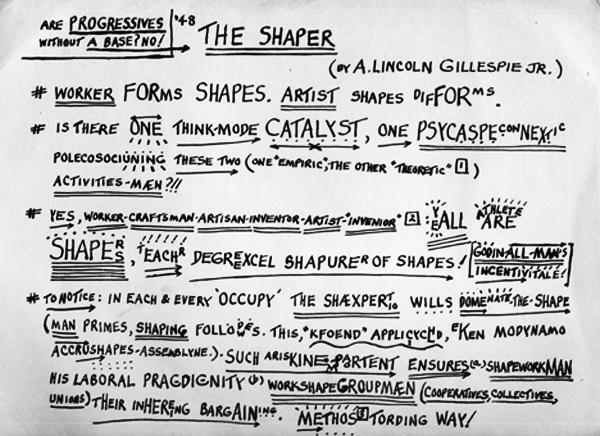 ARE PROGRESSIVES '48
WITHOUT A BASE? NO!
THE SHAPER
(BY A. LINCOLN GILLESPIE JR.)
# WORKER FORMS SHAPES. ARTIST SHAPES DIFFORMS.
# IS THERE ONE THINK-MODE CATALYST, ONE PSYCASPECONNEXTIC
POLECOSOCIUNING THESE TWO (ONE "EMPIRIC", THE OTHER "THEORETIC" 1)
ACTIVITIES-MÆN?!!
# YES, WORKER-CRAFTSMAN-ARTISAN-INVENTOR-ARTIST-"INVENIOR" 2 ALL ATHLETE ARE
SHAPERS, EACH DEGREXCEL SHAPURER OF SHAPES! [GODIN-ALL-MAN'S
INCENTIVITALE!]
# TO NOTICE: IN EACH & EVERY 'OCCUPY' THE SHÆXPERT WILLS DOMENATE-THE-SHAPE
(MAN PRIMES, SHAPING FOLLOPES. THIS, "KFOEND" APPLICYCL'D, EKEN MODYNAMO
ACCRUSHAPES-ASSEABLYNE.). SUCH ARISKINE PORTENT ENSURES (a) SHAPEWORKMAN
HIS LABORAL PRAGDIGNITY (b) WORKSHAPEGROUPMÆN (COOPERATIVES, COLLECTIVES,
UNIONS) THEIR INHERING BARGAINING. METHOS 3 TORDING WAY!